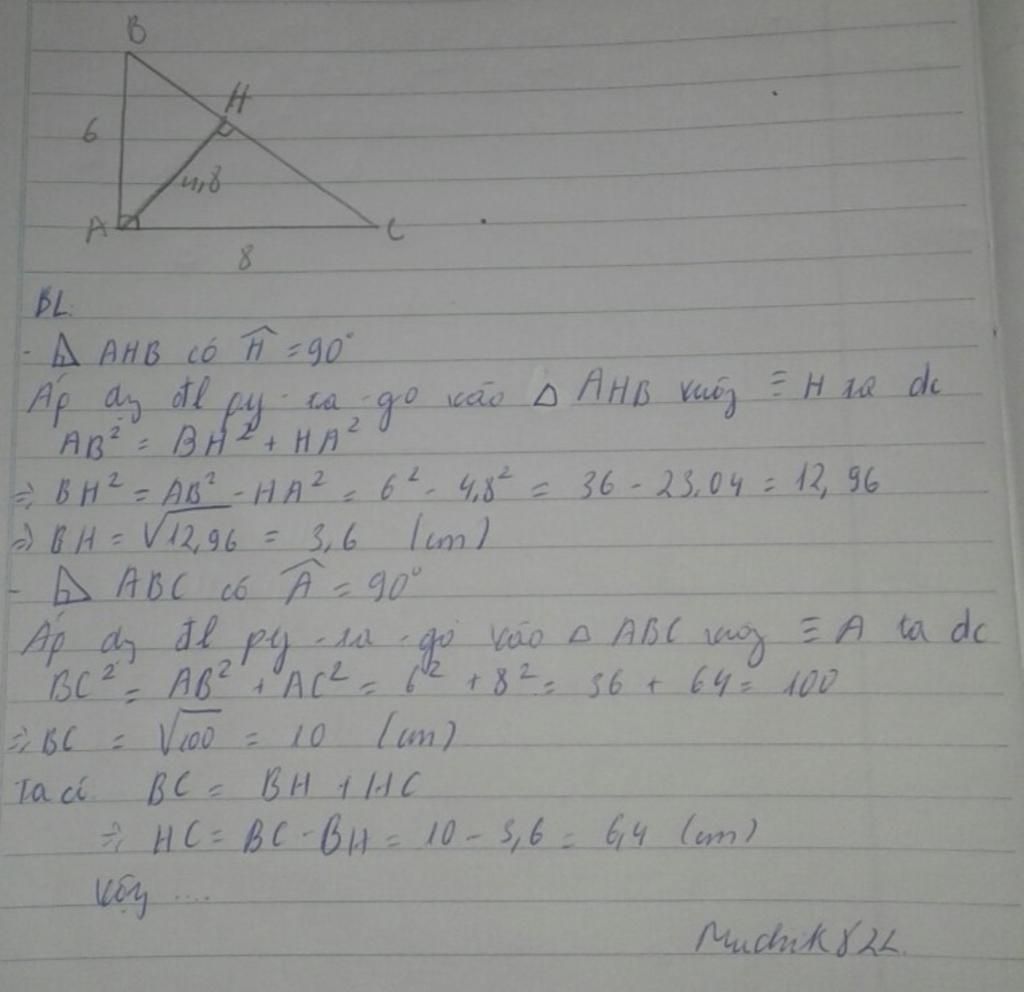 B
H
6
4,8
A
C
8
BL:
- △ AHB có Ĥ = 90°
Áp dg đl py-ta-go vào △ AHB vuôg ≡ H ta dc
AB² = BH² + HA²
=> BH² = AB² - HA² = 6² - 4,8² = 36 - 23,04 = 12,96
=> BH = √12,96 = 3,6 (cm)
- △ ABC có Â = 90°
Áp dg đl py-ta-go vào △ ABC vuôg ≡ A ta dc
BC² = AB² + AC² = 6² + 8² = 36 + 64 = 100
=> BC = √100 = 10 (cm)
Ta có BC = BH + HC
=> HC = BC - BH = 10 - 3,6 = 6,4 (cm)
Vậy ....